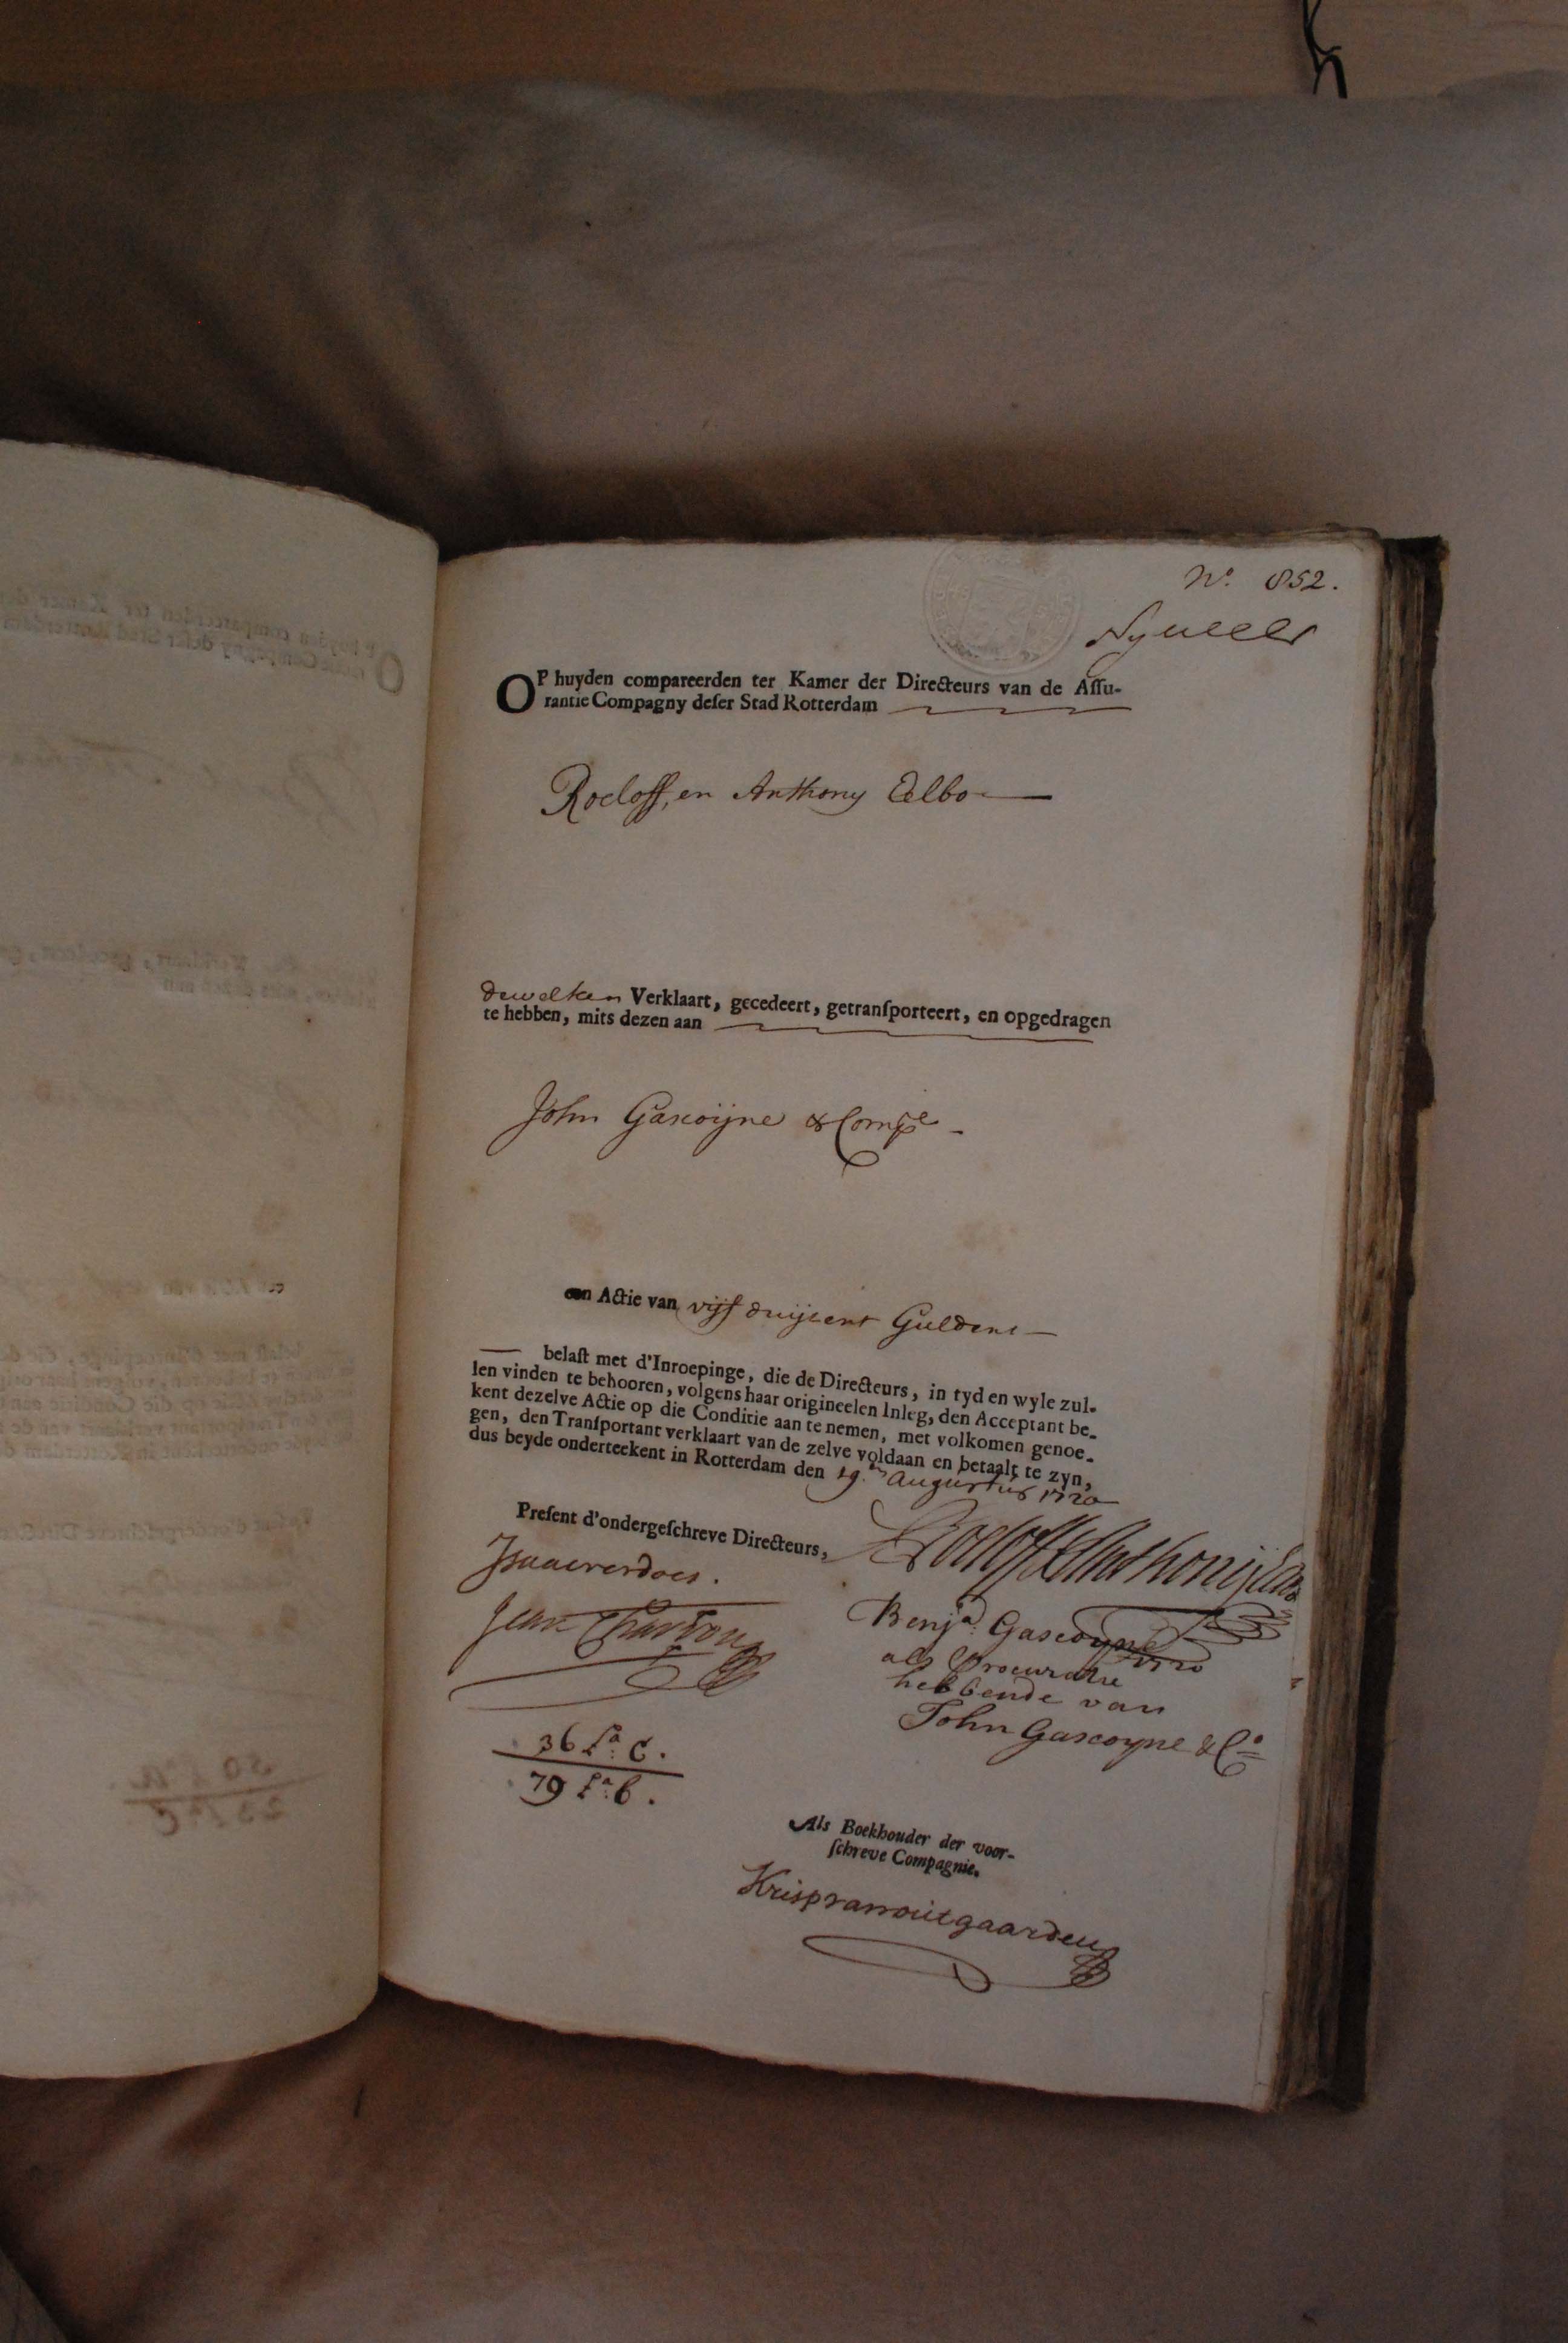 No. 852.
OP huyden compareerden ter Kamer der Directeurs van de Assu-
rantie Compagny deser Stad Rotterdam
Roeloff, en Anthony Eelbo
dewelken Verklaart, gecedeert, getransporteert, en opgedragen
te hebben, mits dezen aan
John Gascoijne & Compe
een Actie van vijf duijsent Guldens
belast met d'Inroepinge, die de Directeurs, in tyd en wyle zul-
len vinden te behooren, volgens haar origineelen Inleg, den Acceptant be-
kent dezelve Actie op die Conditie aan te nemen, met volkomen genoe-
gen, den Transportant verklaart van de zelve voldaan en betaalt te zyn,
dus beyde onderteekent in Rotterdam den 19.en Augustus 1720
Present d'ondergeschreve Directeurs,
Roeloff & Anthonij Eelbo
Isaac verdoes.
Jean Chartron
Benj.a Gascoyne
1720
als Procuratie
hebbende van
John Gascoyne & Co
36 La C.
79 La b.
Als Boekhouder der voor-
schreve Compagnie.
Krisp van Wijtgaarden